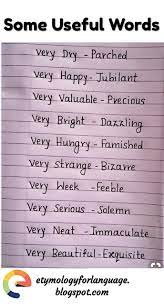 Some Useful Words
Very Dry - Parched
Very Happy - Jubilant
Very Valuable - Precious
Very Bright - Dazzling
Very Hungry - Famished
Very Strange - Bizarre
Very Week - Feeble
Very Serious - Solemn
Very Neat - Immaculate
Very Beautiful - Exquisite
etymologyforlanguage.
blogspot.com